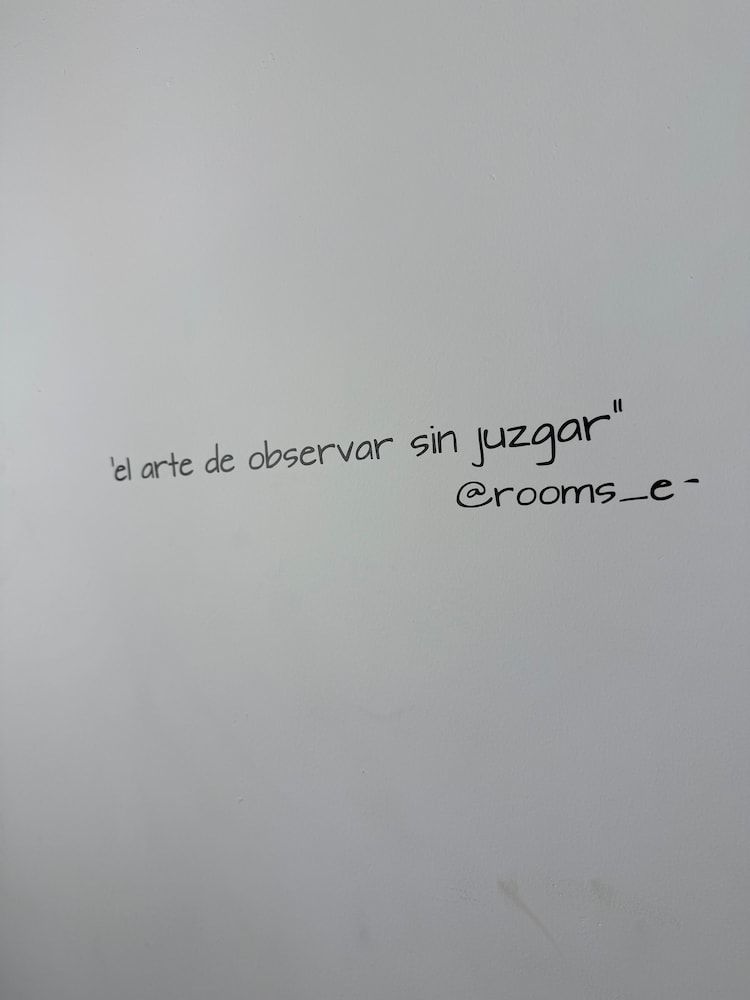 'el arte de observar sin juzgar"
@rooms_e-